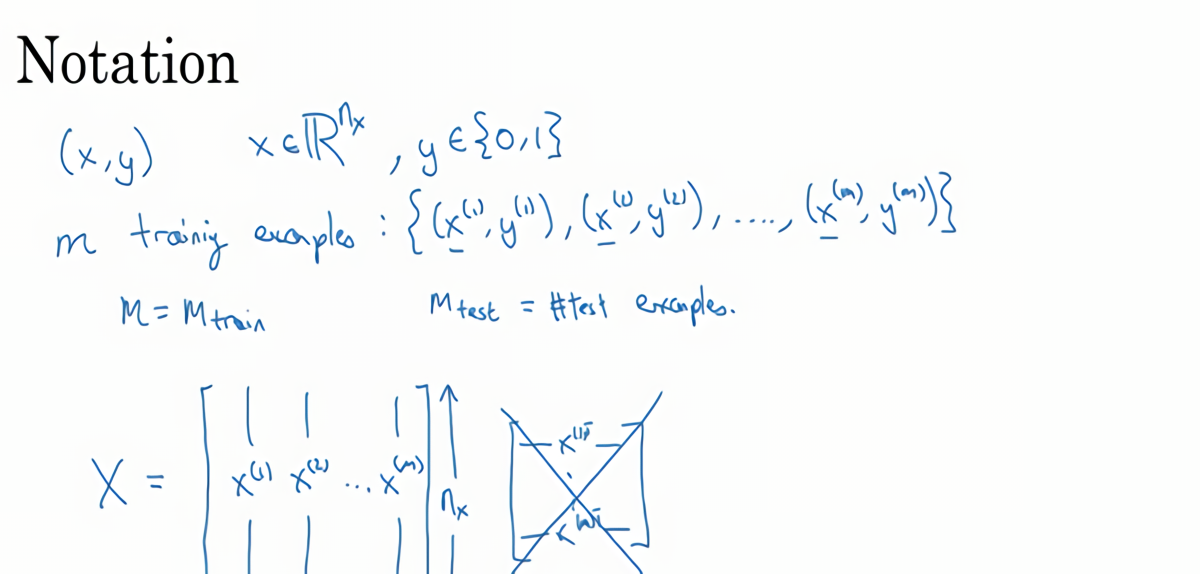 Notation
(x,y) x∈ℝ^{n_x}, y∈{0,1}
m training examples : {(x^{(1)},y^{(1)}), (x^{(2)},y^{(2)}), ...., (x^{(m)},y^{(m)})}
M = M_{train} M_{test} = #test examples.
x^{(1)T}
X = [ x^{(1)} x^{(2)} ... x^{(m)} ] n_x
x^{(m)T}